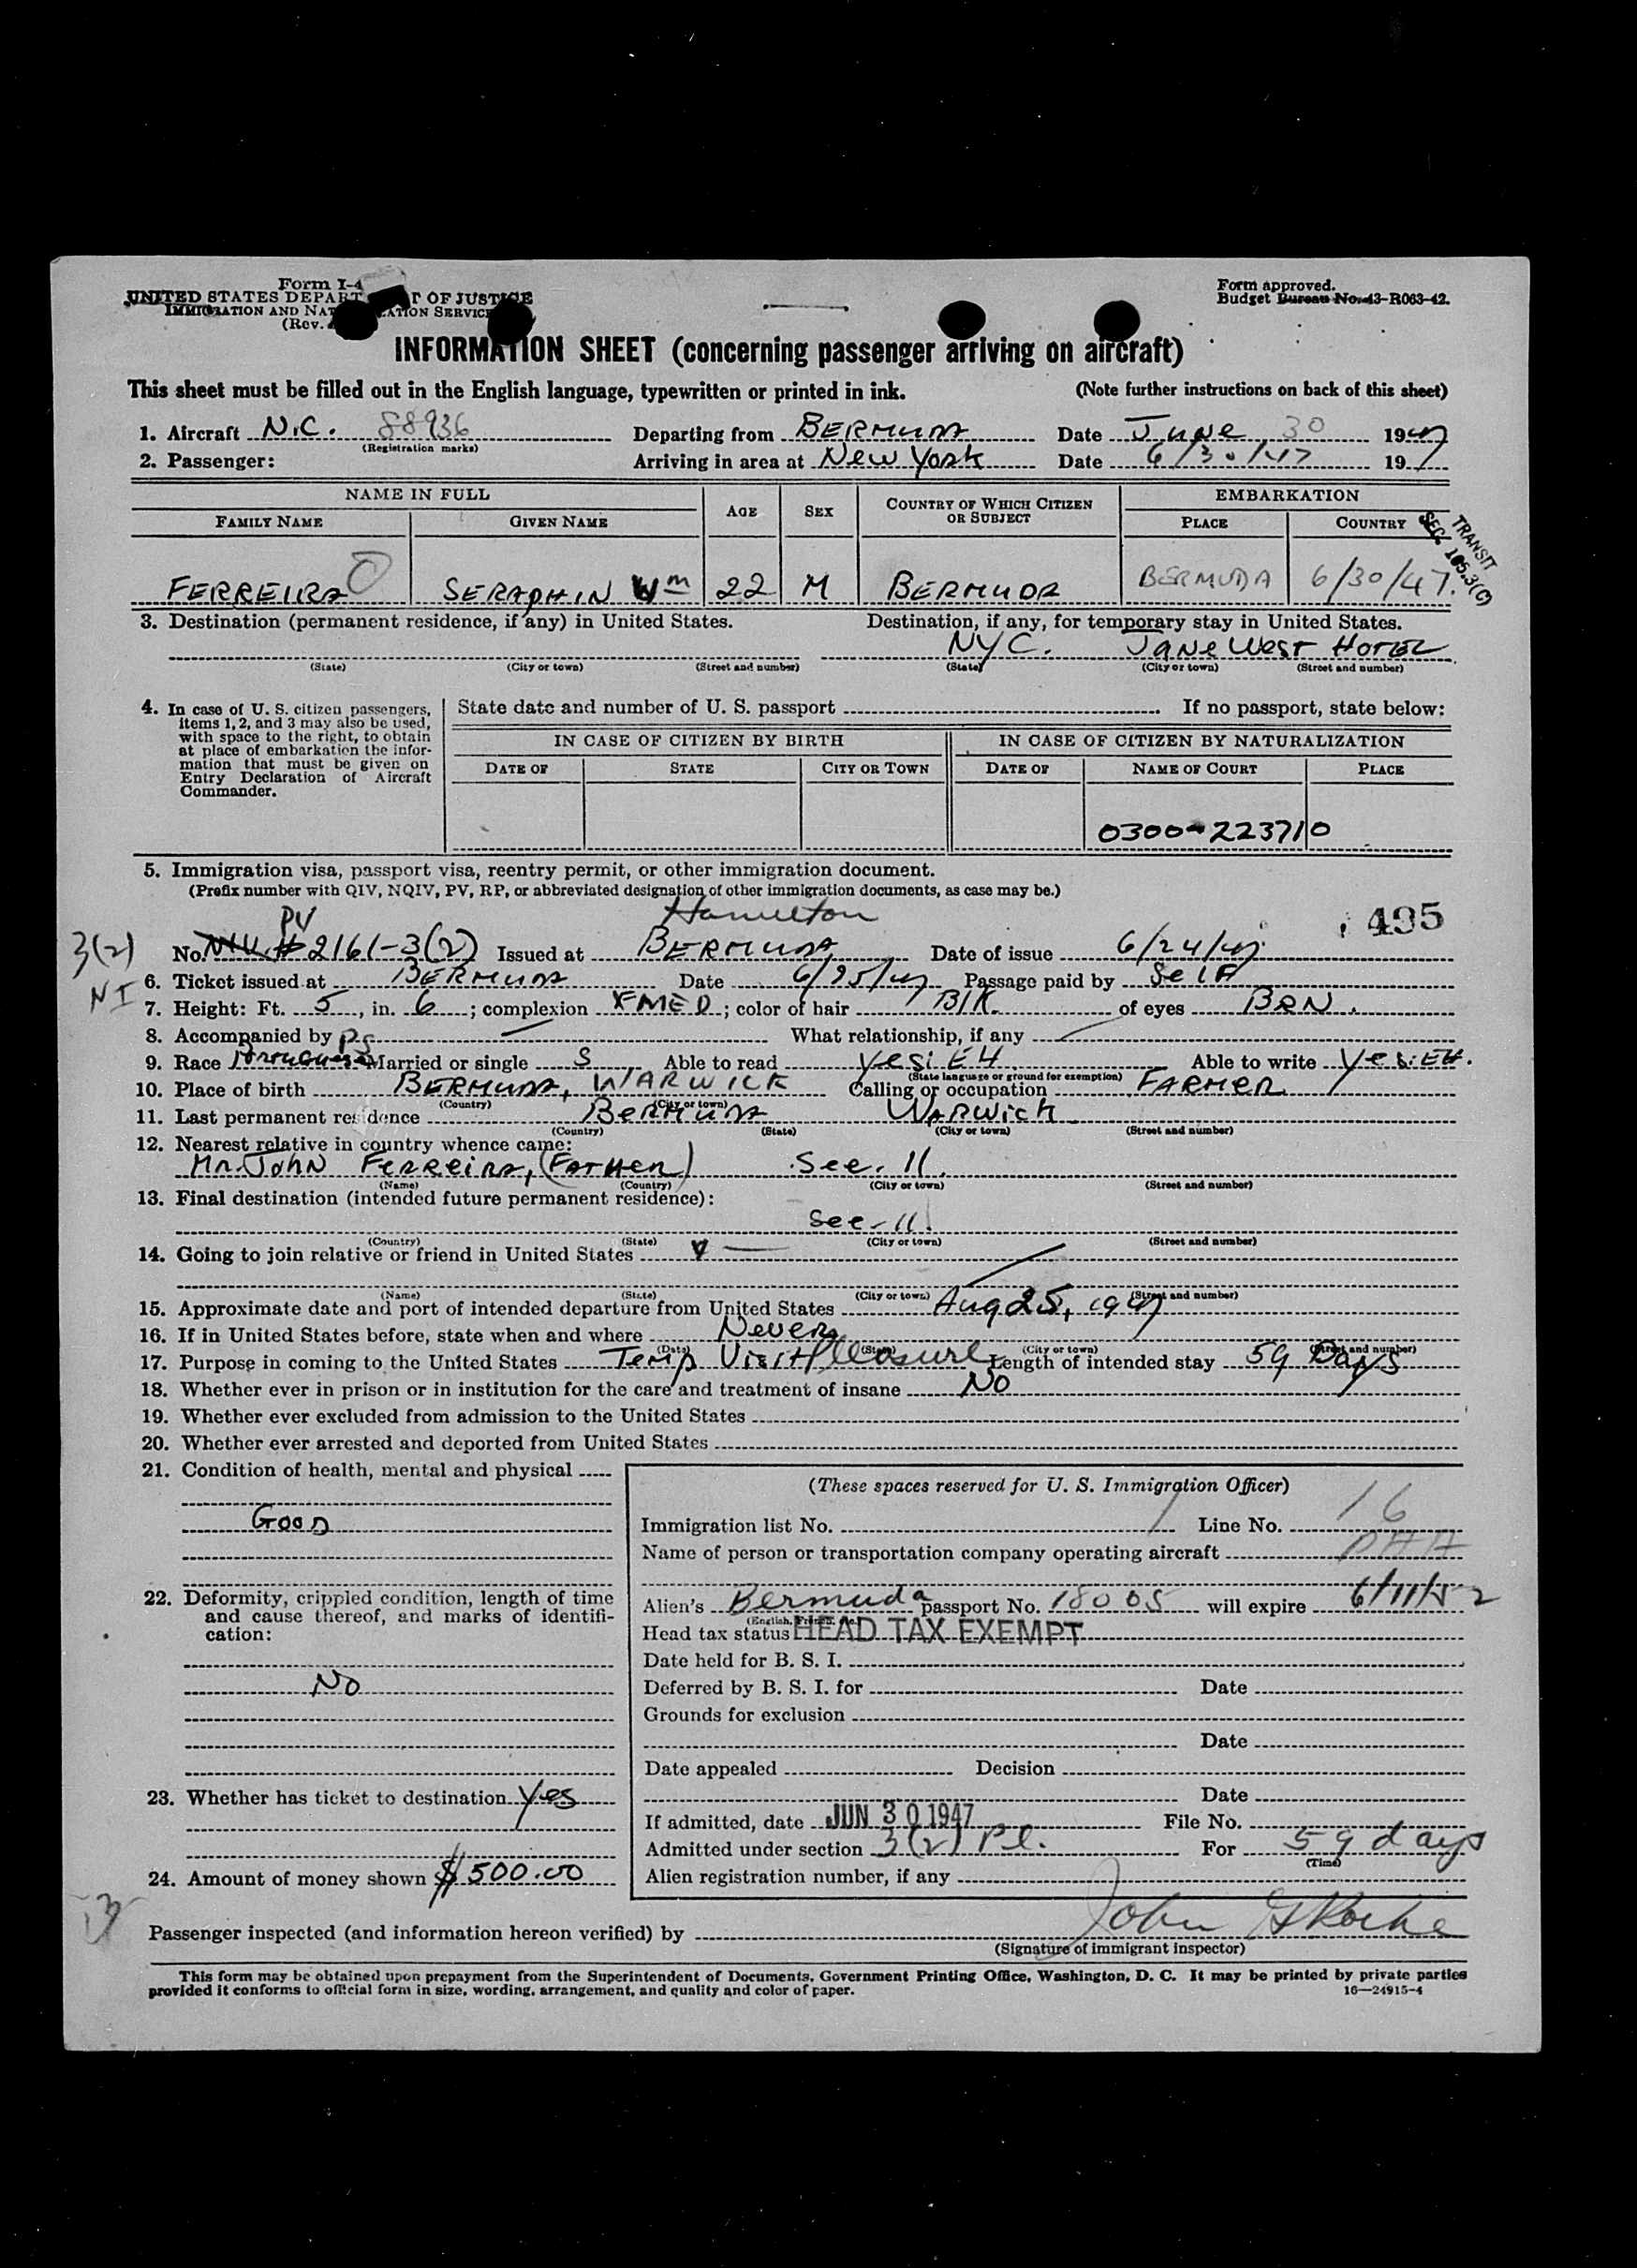 Form I-4
UNITED STATES DEPART T OF JUSTICE
IMMIGRATION AND NAT ATION SERVICE
(Rev.
Form approved.
Budget Bureau No. 43-R063-42.
INFORMATION SHEET (concerning passenger arriving on aircraft)
This sheet must be filled out in the English language, typewritten or printed in ink. (Note further instructions on back of this sheet)
1. Aircraft N.C. 88936 Departing from BERMUDA Date JUNE 30 1947
(Registration marks)
2. Passenger: Arriving in area at New York Date 6/30/47 197
NAME IN FULL AGE SEX COUNTRY OF WHICH CITIZEN OR SUBJECT EMBARKATION
FAMILY NAME GIVEN NAME PLACE COUNTRY
TRANSIT
SEC. 105.3(C)
FERREIRA SERAPHIN Wm 22 M BERMUDA BERMUDA 6/30/47.
3. Destination (permanent residence, if any) in United States. Destination, if any, for temporary stay in United States.
NYC. JANE WEST HOTEL
(State) (City or town) (Street and number) (State) (City or town) (Street and number)
4. In case of U. S. citizen passengers, items 1, 2, and 3 may also be used, with space to the right, to obtain at place of embarkation the information that must be given on Entry Declaration of Aircraft Commander.
State date and number of U. S. passport If no passport, state below:
IN CASE OF CITIZEN BY BIRTH IN CASE OF CITIZEN BY NATURALIZATION
DATE OF STATE CITY OR TOWN DATE OF NAME OF COURT PLACE
0300-223710
5. Immigration visa, passport visa, reentry permit, or other immigration document.
(Prefix number with QIV, NQIV, PV, RP, or abbreviated designation of other immigration documents, as case may be.)
PV Hamilton 495
3(2) No. # 2161-3(2) Issued at BERMUDA Date of issue 6/24/47
NI 6. Ticket issued at BERMUDA Date 6/25/47 Passage paid by SELF
7. Height: Ft. 5, in. 6; complexion MED; color of hair BlK. of eyes BRN.
8. Accompanied by What relationship, if any
9. Race Married or single S Able to read yes: EH Able to write yes: EH.
(State language or ground for exemption)
10. Place of birth BERMUDA, WARWICK Calling or occupation FARMER
(Country) (City or town)
11. Last permanent residence BERMUDA WARWICK
(Country) (State) (City or town) (Street and number)
12. Nearest relative in country whence came:
Mr. John Ferreira, (Father) See. 11.
(Name) (Country) (City or town) (Street and number)
13. Final destination (intended future permanent residence):
See. 11.
(Country) (State) (City or town) (Street and number)
14. Going to join relative or friend in United States
(Name) (State) (City or town) (Street and number)
15. Approximate date and port of intended departure from United States Aug 25, 1947
16. If in United States before, state when and where Never
(Date) (State) (City or town) (Street and number)
17. Purpose in coming to the United States Temp Visit Pleasure Length of intended stay 59 Days
18. Whether ever in prison or in institution for the care and treatment of insane NO
19. Whether ever excluded from admission to the United States
20. Whether ever arrested and deported from United States
21. Condition of health, mental and physical
GOOD
22. Deformity, crippled condition, length of time and cause thereof, and marks of identification:
No
23. Whether has ticket to destination Yes
24. Amount of money shown $500.00
(These spaces reserved for U. S. Immigration Officer)
Immigration list No. 1 Line No. 16
Name of person or transportation company operating aircraft PAA
Alien's Bermuda passport No. 18005 will expire 6/11/52
Head tax status HEAD TAX EXEMPT
Date held for B. S. I.
Deferred by B. S. I. for Date
Grounds for exclusion
Date
Date appealed Decision
Date
If admitted, date JUN 30 1947 File No.
Admitted under section 3(2) Pl. For 59 days
(Time)
Alien registration number, if any
Passenger inspected (and information hereon verified) by John G Roche
(Signature of immigrant inspector)
This form may be obtained upon prepayment from the Superintendent of Documents, Government Printing Office, Washington, D. C. It may be printed by private parties
provided it conforms to official form in size, wording, arrangement, and quality and color of paper. 16—24915-4